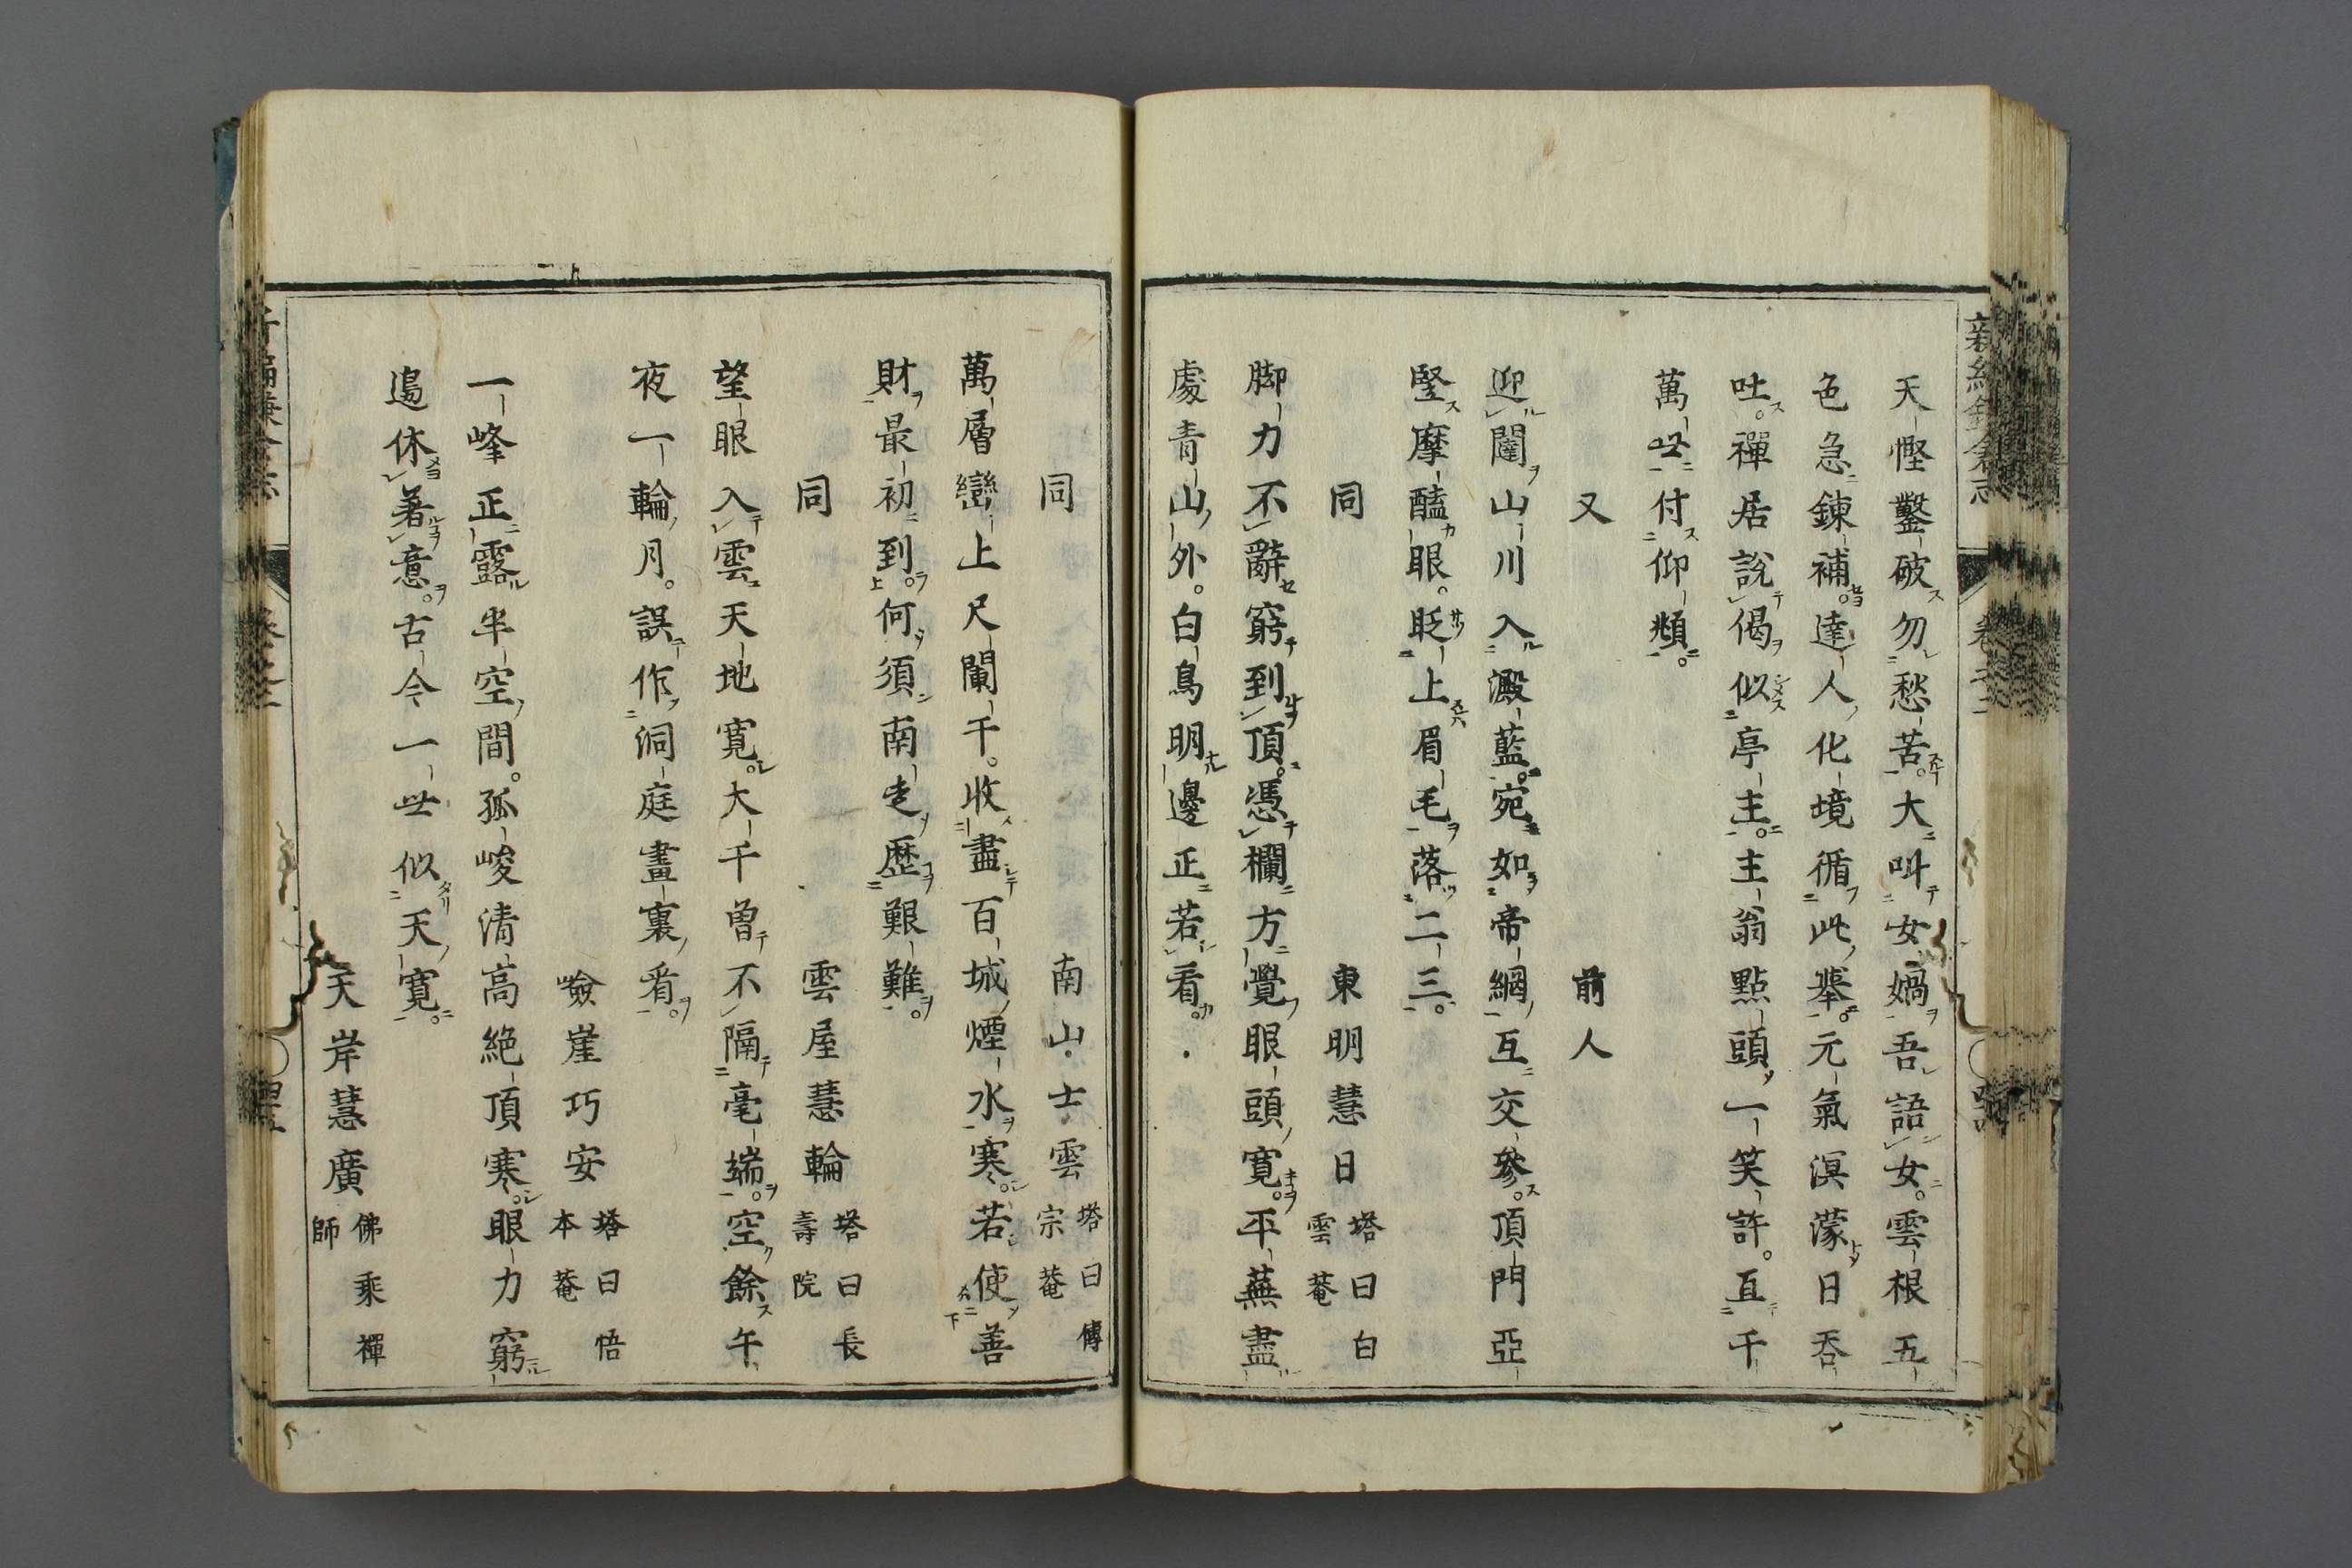 天慳鑿破勿愁苦。大叫女媧吾語女。雲根五
色急鍊補。達人化境循此擧。元氣溟濛日呑
吐。禪居說偈似亭主。主翁點頭一笑許。亙千
萬世付仰頫。
又　前人
迎闥山川入澱藍。宛如帝網互交參。頂門亞
竪摩醯眼。眨上眉毛落二三。
同　東明慧日 塔曰白雲菴
脚力不辭窮到頂。憑欄方覺眼頭寬。平蕪盡
處青山外。白鳥明邊正若看。
同　南山士雲 塔曰傳宗菴
萬層巒上尺闌干。收盡百城煙水寒。若使善
財最初到。何須南走歷艱難。
同　雲屋慧輪 塔曰長壽院
望眼入雲天地寬。大千曾不隔毫端。空餘午
夜一輪月。誤作洞庭畫裏看。
嶮崖巧安 塔曰悟本菴
一峰正露半空間。孤峻清高絶頂寒。眼力窮
邉休著意。古今一世似天寬。
天岸慧廣 佛乘禪師